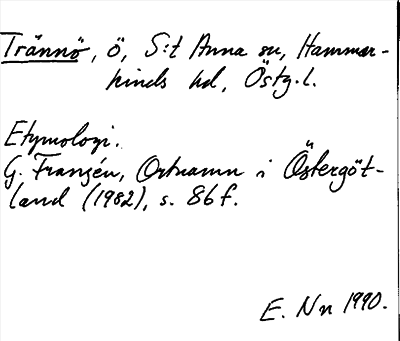 Trännö, ö, S:t Anna sn, Hammar-
kinds hd, Östg.l.
Etymologi.
G. Franzén, Ortnamn i Östergöt-
land (1982), s. 86 f.
E. Nn 1990.